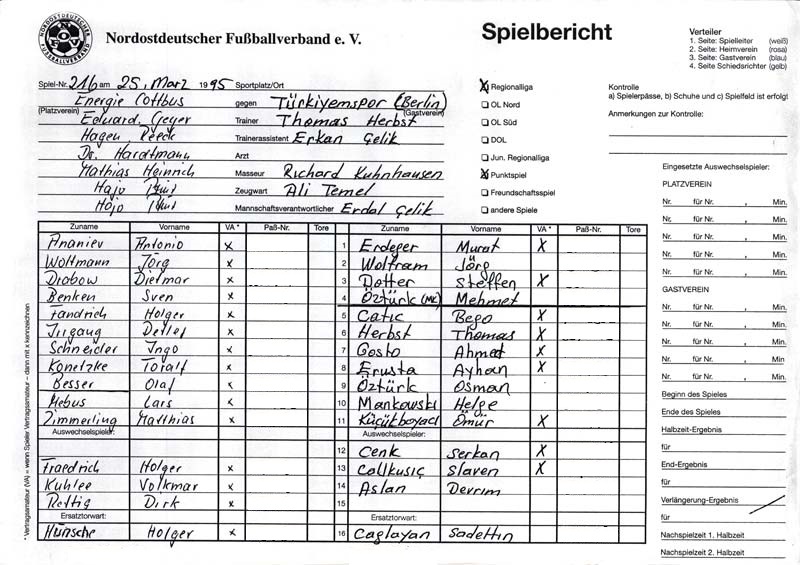 NORDOSTDEUTSCHER FUSSBALLVERBAND NOFV
Nordostdeutscher Fußballverband e. V.
Spielbericht
Verteiler
1. Seite: Spielleiter (weiß)
2. Seite: Heimverein (rosa)
3. Seite: Gastverein (blau)
4. Seite Schiedsrichter (gelb)
Spiel-Nr. 216 am 25. März 1995 Sportplatz/Ort
Energie Cottbus gegen Türkiyemspor (Berlin)
(Platzverein) (Gastverein)
Eduard Geyer Trainer Thomas Herbst
Hagen Reeck Trainerassistent Erkan Gelik
Dr. Hardtmann Arzt
Mathias Heinrich Masseur Richard Kuhnhausen
Hajo Zeugwart Ali Temel
Hojo Mannschaftsverantwortlicher Erdal Gelik
X Regionalliga
OL Nord
OL Süd
DOL
Jun. Regionalliga
X Punktspiel
Freundschaftsspiel
andere Spiele
Kontrolle
a) Spielerpässe, b) Schuhe und c) Spielfeld ist erfolgt
Anmerkungen zur Kontrolle:
Zuname Vorname VA * Paß-Nr. Tore Zuname Vorname VA * Paß-Nr. Tore
Ananiev Antonio x 1 Erdeger Murat X
Woltmann Jörg x 2 Wolfram Jörg
Drabow Dietmar x 3 Dotter Steffen X
Benken Sven x 4 Öztürk (MK) Mehmet
Fandrich Holger x 5 Catic Bego X
Irrgang Detlef x 6 Herbst Thomas X
Schneider Ingo x 7 Gosto Ahmed X
Konetzke Toralf x 8 Erusta Ayhan X
Besser Olaf x 9 Öztürk Osman
Mebus Lars x 10 Mankowski Helge
Zimmerling Matthias x 11 Küçükboyaci Ömür X
Auswechselspieler: Auswechselspieler:
12 Cenk Serkan X
Fraedrich Holger x 13 Collkusic Slaven X
Kuhlee Volkmar x 14 Aslan Devrim
Rettig Dirk x 15
Ersatztorwart: Ersatztorwart:
Hünsche Holger x 16 Caglayan Sadettin
* Vertragsamateur (VA) = wenn Spieler Vertragsamateur – dann mit x kennzeichnen
Eingesetzte Auswechselspieler:
PLATZVEREIN
Nr. für Nr. , Min.
Nr. für Nr. , Min.
Nr. für Nr. , Min.
Nr. für Nr. , Min.
Nr. für Nr. , Min.
GASTVEREIN
Nr. für Nr. , Min.
Nr. für Nr. , Min.
Nr. für Nr. , Min.
Nr. für Nr. , Min.
Nr. für Nr. , Min.
Beginn des Spieles
Ende des Spieles
Halbzeit-Ergebnis
für
End-Ergebnis
für
Verlängerung-Ergebnis
für
Nachspielzeit 1. Halbzeit
Nachspielzeit 2. Halbzeit